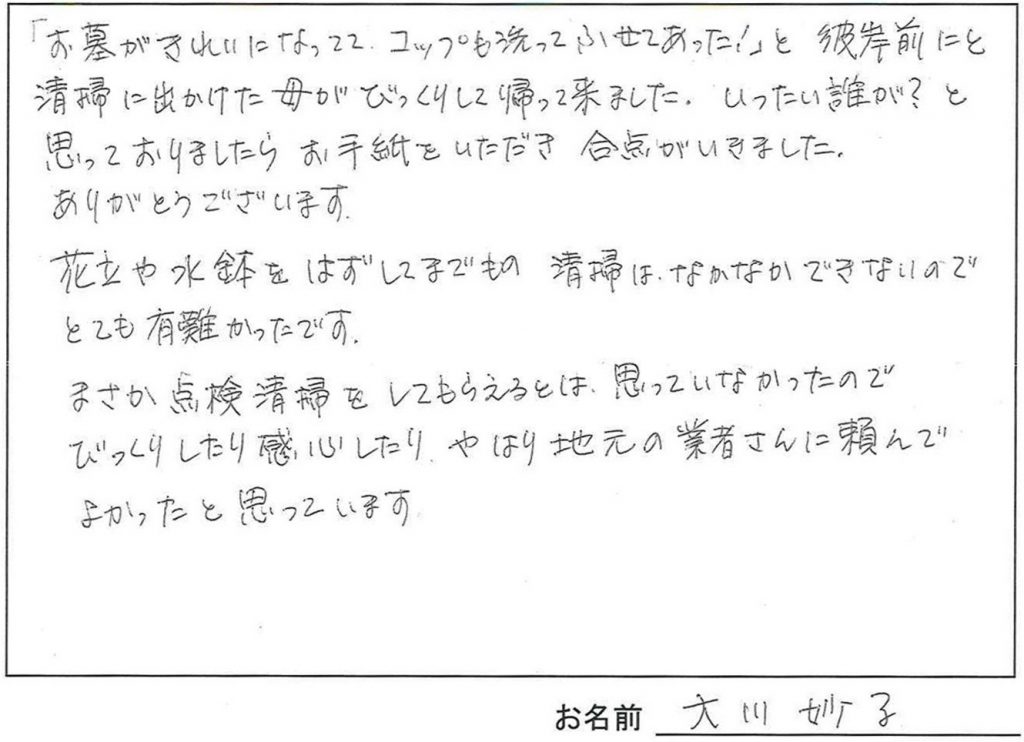 「お墓がきれいになってて、コップも洗ってふせてあった！」と 彼岸前にと
清掃に出かけた母がびっくりして帰って来ました。いったい誰が？と
思っておりましたら お手紙をいただき 合点がいきました。
ありがとうございます。
花立や水鉢を はずしてまでもの 清掃は、なかなかできないので
とても有難かったです。
まさか点検清掃を してもらえるとは、思っていなかったので
びっくりしたり感心したり、やはり地元の業者さんに頼んで
よかったと思っています。
お名前 大川 妙子